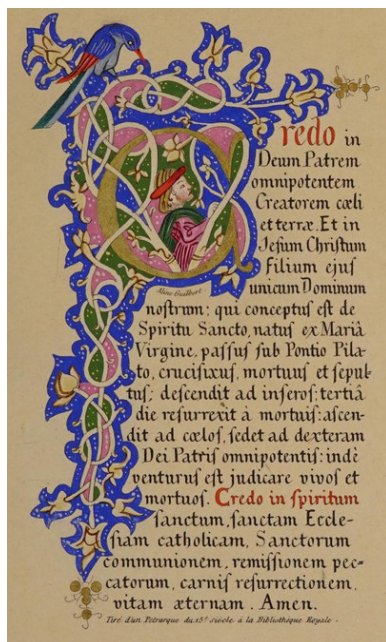 Credo in
Deum Patrem
omnipotentem
Creatorem cœli
et terræ. Et in
Jeſum Chriſtum
filium ejuſ
unicum Dominum
noſtrum; qui conceptuſ eſt de
Spiritu Sancto, natuſ ex Mariâ
Virgine, paſſuſ ſub Pontio Pila-
to, crucifixuſ, mortuuſ et ſepul-
tuſ; deſcendit ad inferoſ: tertiâ
die reſurrexit à mortuiſ: aſcen-
dit ad cœloſ, ſedet ad dexteram
Dei Patriſ omnipotentiſ: indè
venturuſ eſt judicare vivoſ et
mortuoſ. Credo in ſpiritum
ſanctum, ſanctam Eccle-
ſiam catholicam, Sanctorum
communionem, remiſſionem pec-
catorum, carniſ reſurrectionem,
vitam æternam. Amen.
Tiré d'un Petrarque du 15.e siècle à la Bibliothèque Royale.